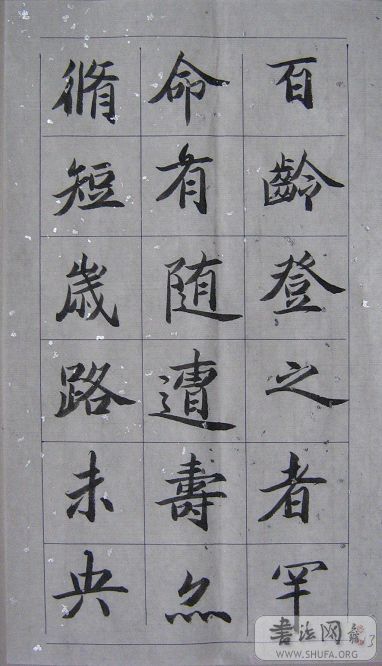 百齡登之者罕
命有随遭壽亦
脩短歲路未央
書法网
WWW.SHUFA.ORG